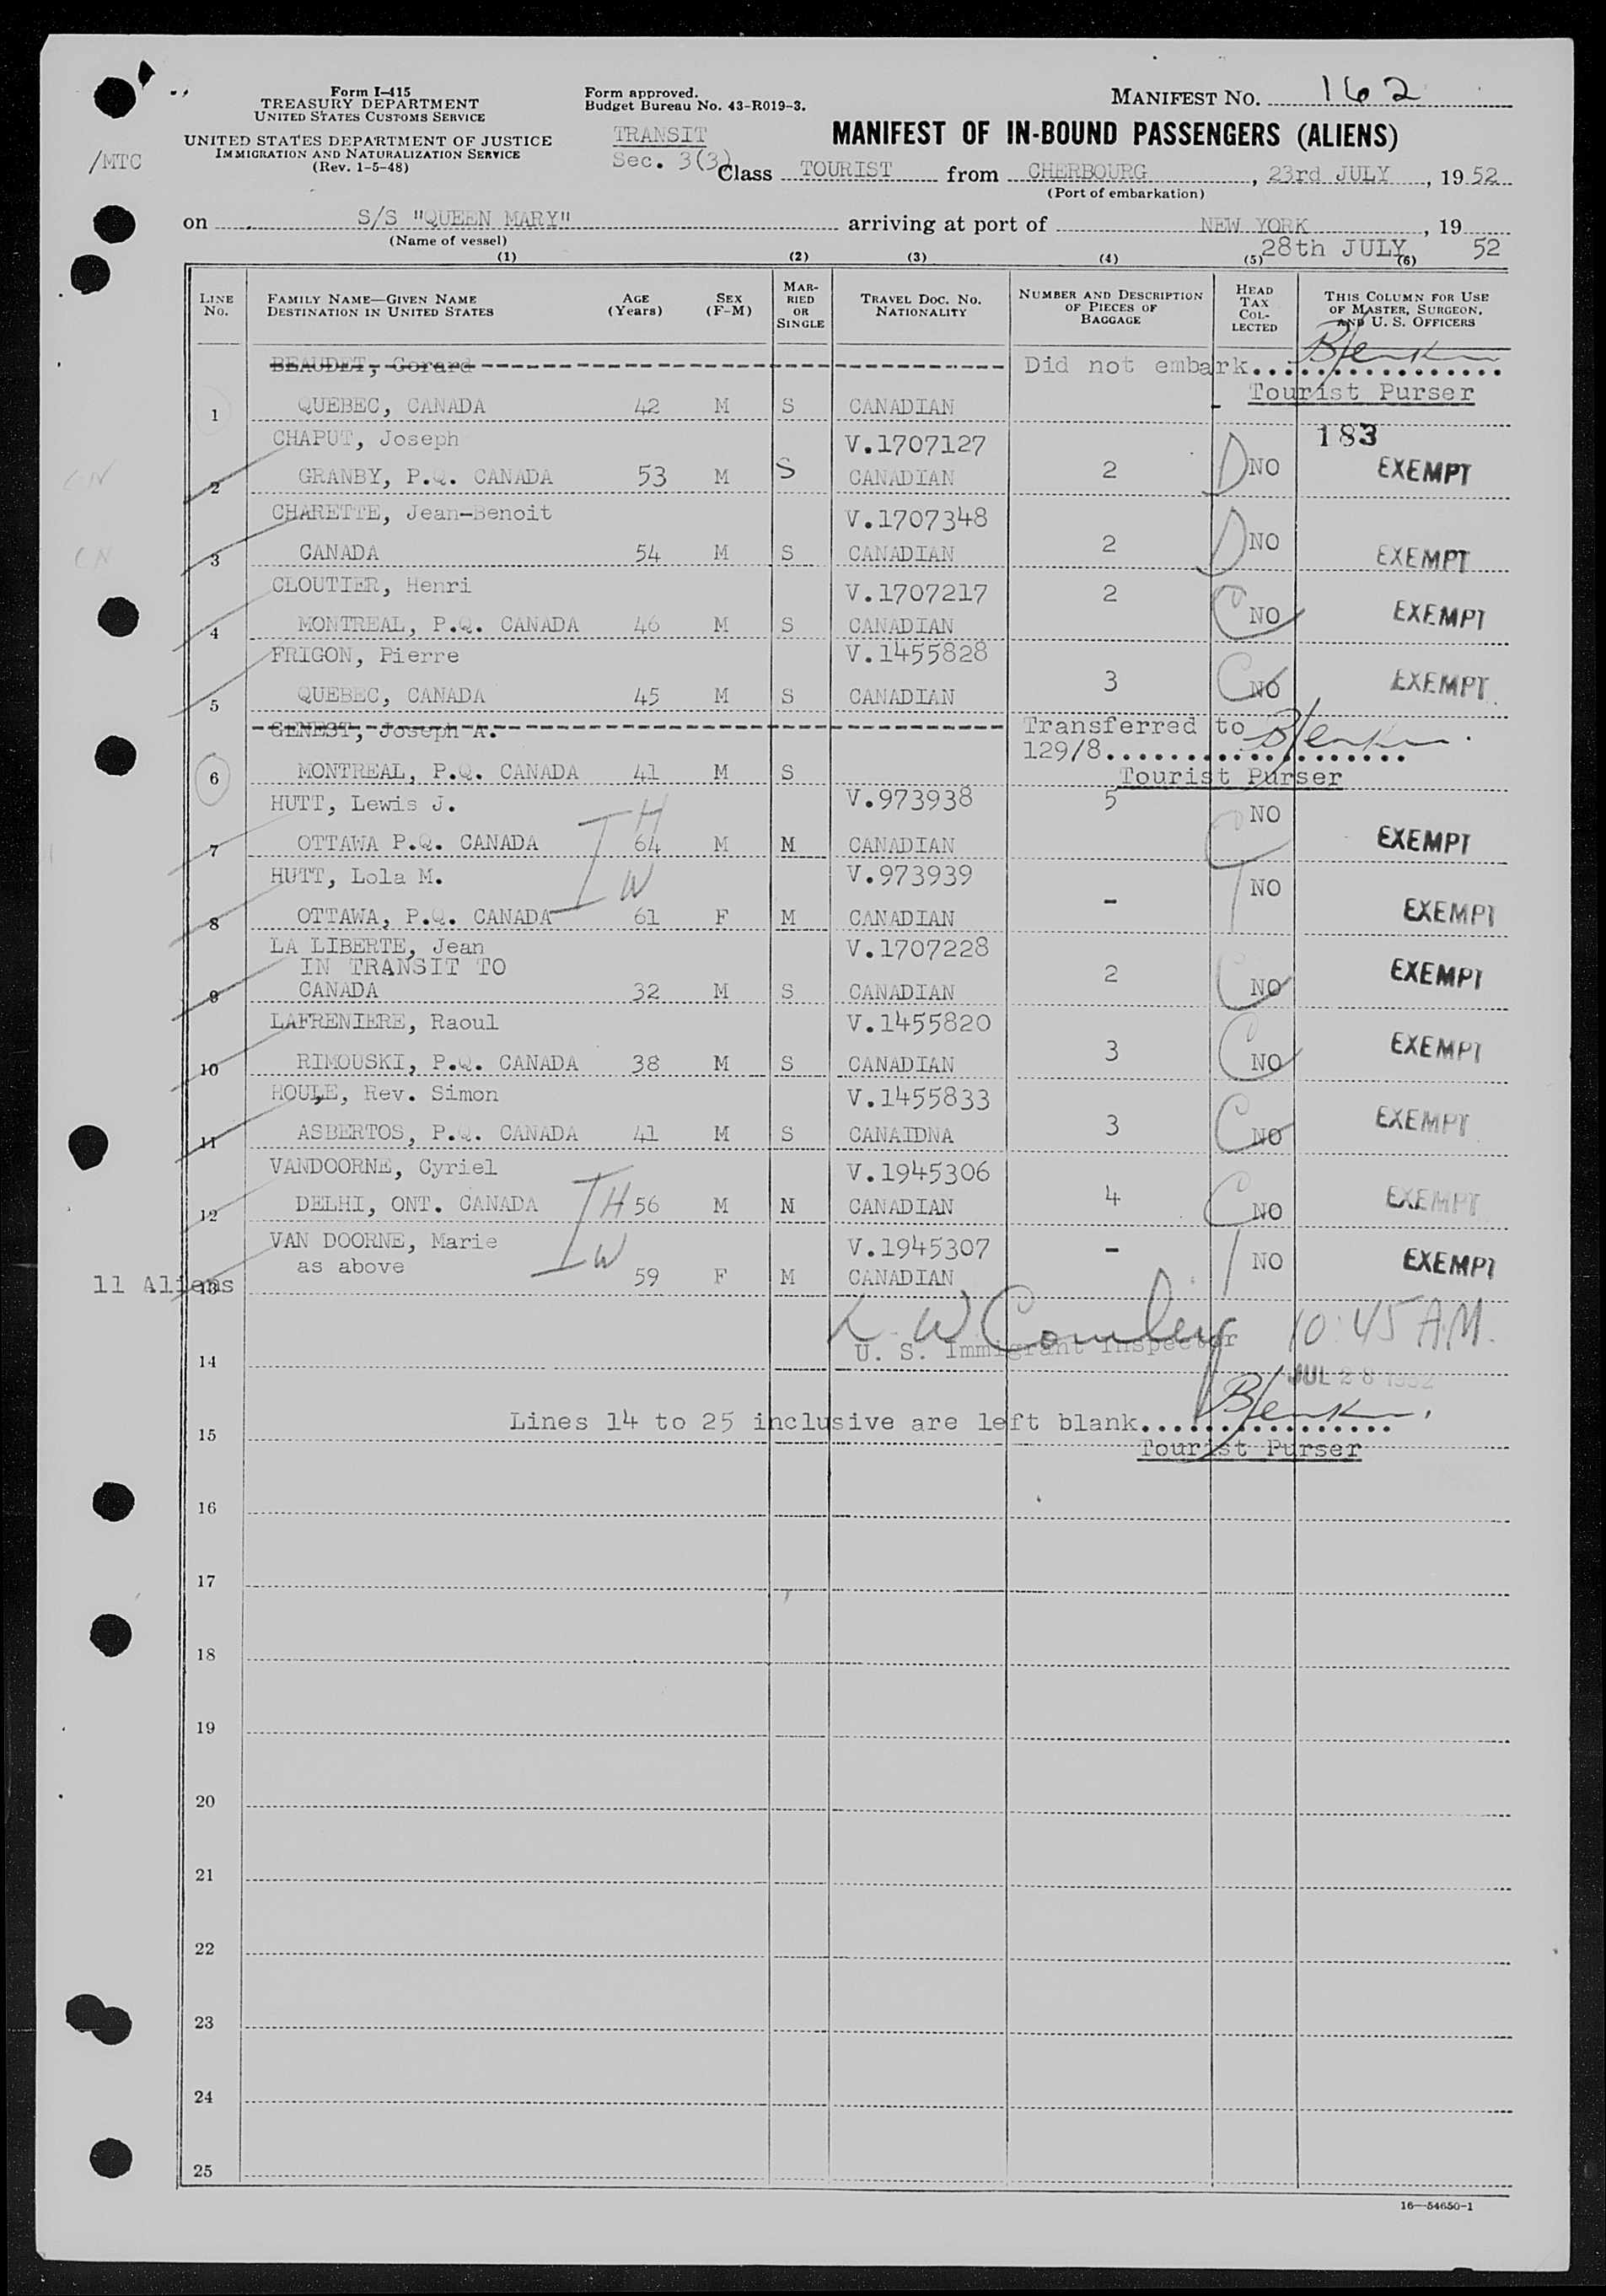 Form I-415
TREASURY DEPARTMENT
UNITED STATES CUSTOMS SERVICE
UNITED STATES DEPARTMENT OF JUSTICE
IMMIGRATION AND NATURALIZATION SERVICE
(Rev. 1-5-48)
/MTC
Form approved.
Budget Bureau No. 43-R019-3.
TRANSIT
Sec. 3(3)
MANIFEST NO. 162
MANIFEST OF IN-BOUND PASSENGERS (ALIENS)
Class TOURIST from CHERBOURG, 23rd JULY, 19 52
(Port of embarkation)
on S/S "QUEEN MARY" arriving at port of NEW YORK, 19
(Name of vessel) 28th JULY 52
(1) (2) (3) (4) (5) (6)
LINE NO. FAMILY NAME—GIVEN NAME DESTINATION IN UNITED STATES AGE (Years) SEX (F-M) MARRIED OR SINGLE TRAVEL DOC. NO. NATIONALITY NUMBER AND DESCRIPTION OF PIECES OF BAGGAGE HEAD TAX COLLECTED THIS COLUMN FOR USE OF MASTER, SURGEON, AND U. S. OFFICERS
BEAUDET, Gorard Did not embark................
Tourist Purser
1 QUEBEC, CANADA 42 M S CANADIAN -
183
CHAPUT, Joseph V.1707127
CN 2 GRANBY, P.Q. CANADA 53 M S CANADIAN 2 D NO EXEMPT
CHARETTE, Jean-Benoit V.1707348
CN 3 CANADA 54 M S CANADIAN 2 D NO EXEMPT
CLOUTIER, Henri V.1707217 2
4 MONTREAL, P.Q. CANADA 46 M S CANADIAN C NO EXEMPT
FRIGON, Pierre V.1455828
5 QUEBEC, CANADA 45 M S CANADIAN 3 C NO EXEMPT
GENEST, Joseph A. Transferred to
129/8...................
6 MONTREAL, P.Q. CANADA 41 M S Tourist Purser
HUTT, Lewis J. V.973938 5 NO
7 OTTAWA P.Q. CANADA I H 64 M M CANADIAN C EXEMPT
HUTT, Lola M. V.973939 NO
8 OTTAWA, P.Q. CANADA I W 61 F M CANADIAN - EXEMPT
LA LIBERTE, Jean V.1707228
IN TRANSIT TO
9 CANADA 32 M S CANADIAN 2 C NO EXEMPT
LAFRENIERE, Raoul V.1455820
10 RIMOUSKI, P.Q. CANADA 38 M S CANADIAN 3 C NO EXEMPT
HOULE, Rev. Simon V.1455833
11 ASBERTOS, P.Q. CANADA 41 M S CANAIDNA 3 C NO EXEMPT
VANDOORNE, Cyriel V.1945306
12 DELHI, ONT. CANADA I H 56 M M CANADIAN 4 C NO EXEMPT
VAN DOORNE, Marie V.1945307
as above I W - NO EXEMPT
11 Aliens 13 59 F M CANADIAN
10:45 A.M.
U. S. Immigrant Inspector
14 JUL 28 1952
Lines 14 to 25 inclusive are left blank................
15 Tourist Purser
16
17
18
19
20
21
22
23
24
25
16—54650-1